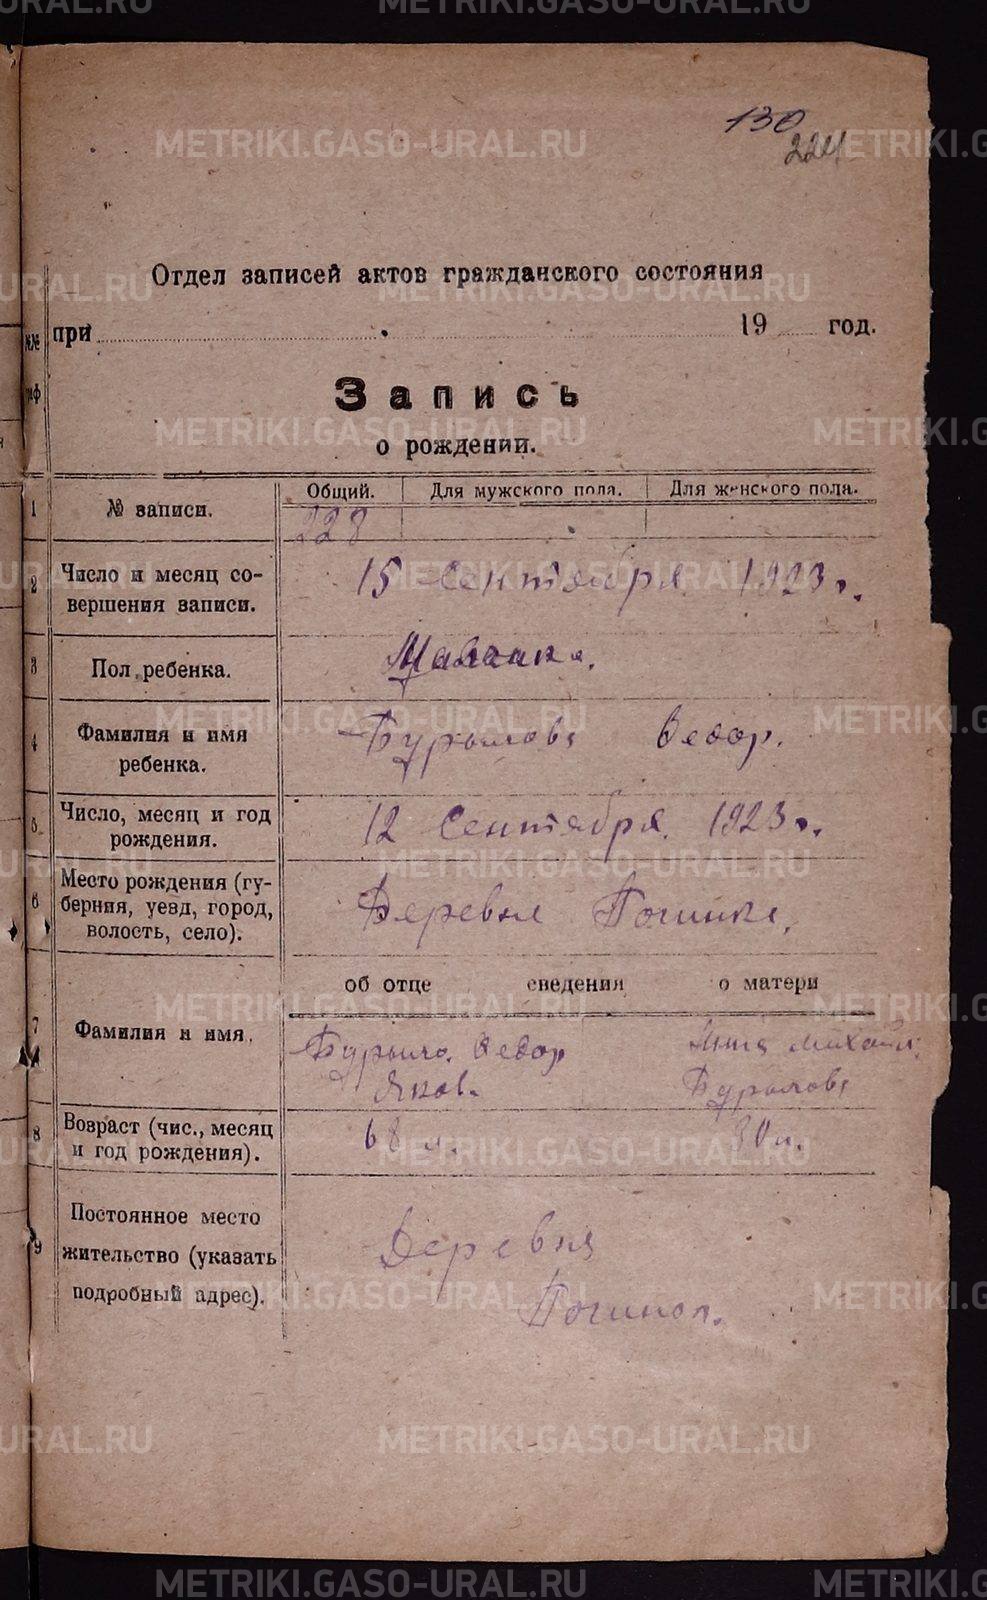 130
224
Отдел записей актов гражданского состояния
при 19 год.
№№
Запись
о рождении.
Общий. Для мужского пола. Для женского пола.
1 № записи. 228
2 Число и месяц совершения записи. 15 Сентября 1923 г.
3 Пол ребенка.
4 Фамилия и имя ребенка. Бурылова Федор.
5 Число, месяц и год рождения. 12 Сентября 1923 г.
6 Место рождения (губерния, уезд, город, волость, село). Деревня Починке,
об отце сведения о матери
7 Фамилия и имя. Бурыло. Федор Яков. Анна Михайл. Бурылова
8 Возраст (чис., месяц и год рождения). 68 л. 30 л.
9 Постоянное место жительство (указать подробный адрес). Деревня
Починок.
METRIKI.GASO-URAL.RU